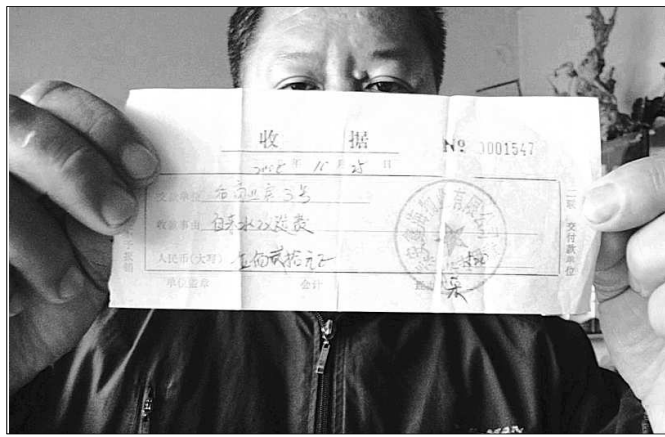 收 据
№ 0001547
2018 年 11 月 25 日
交款单位 台商业房3号
收款事由 自来水改造费
人民币(大写) 伍佰贰拾元正
单位盖章 会计
二联 交付款单位
有限公司